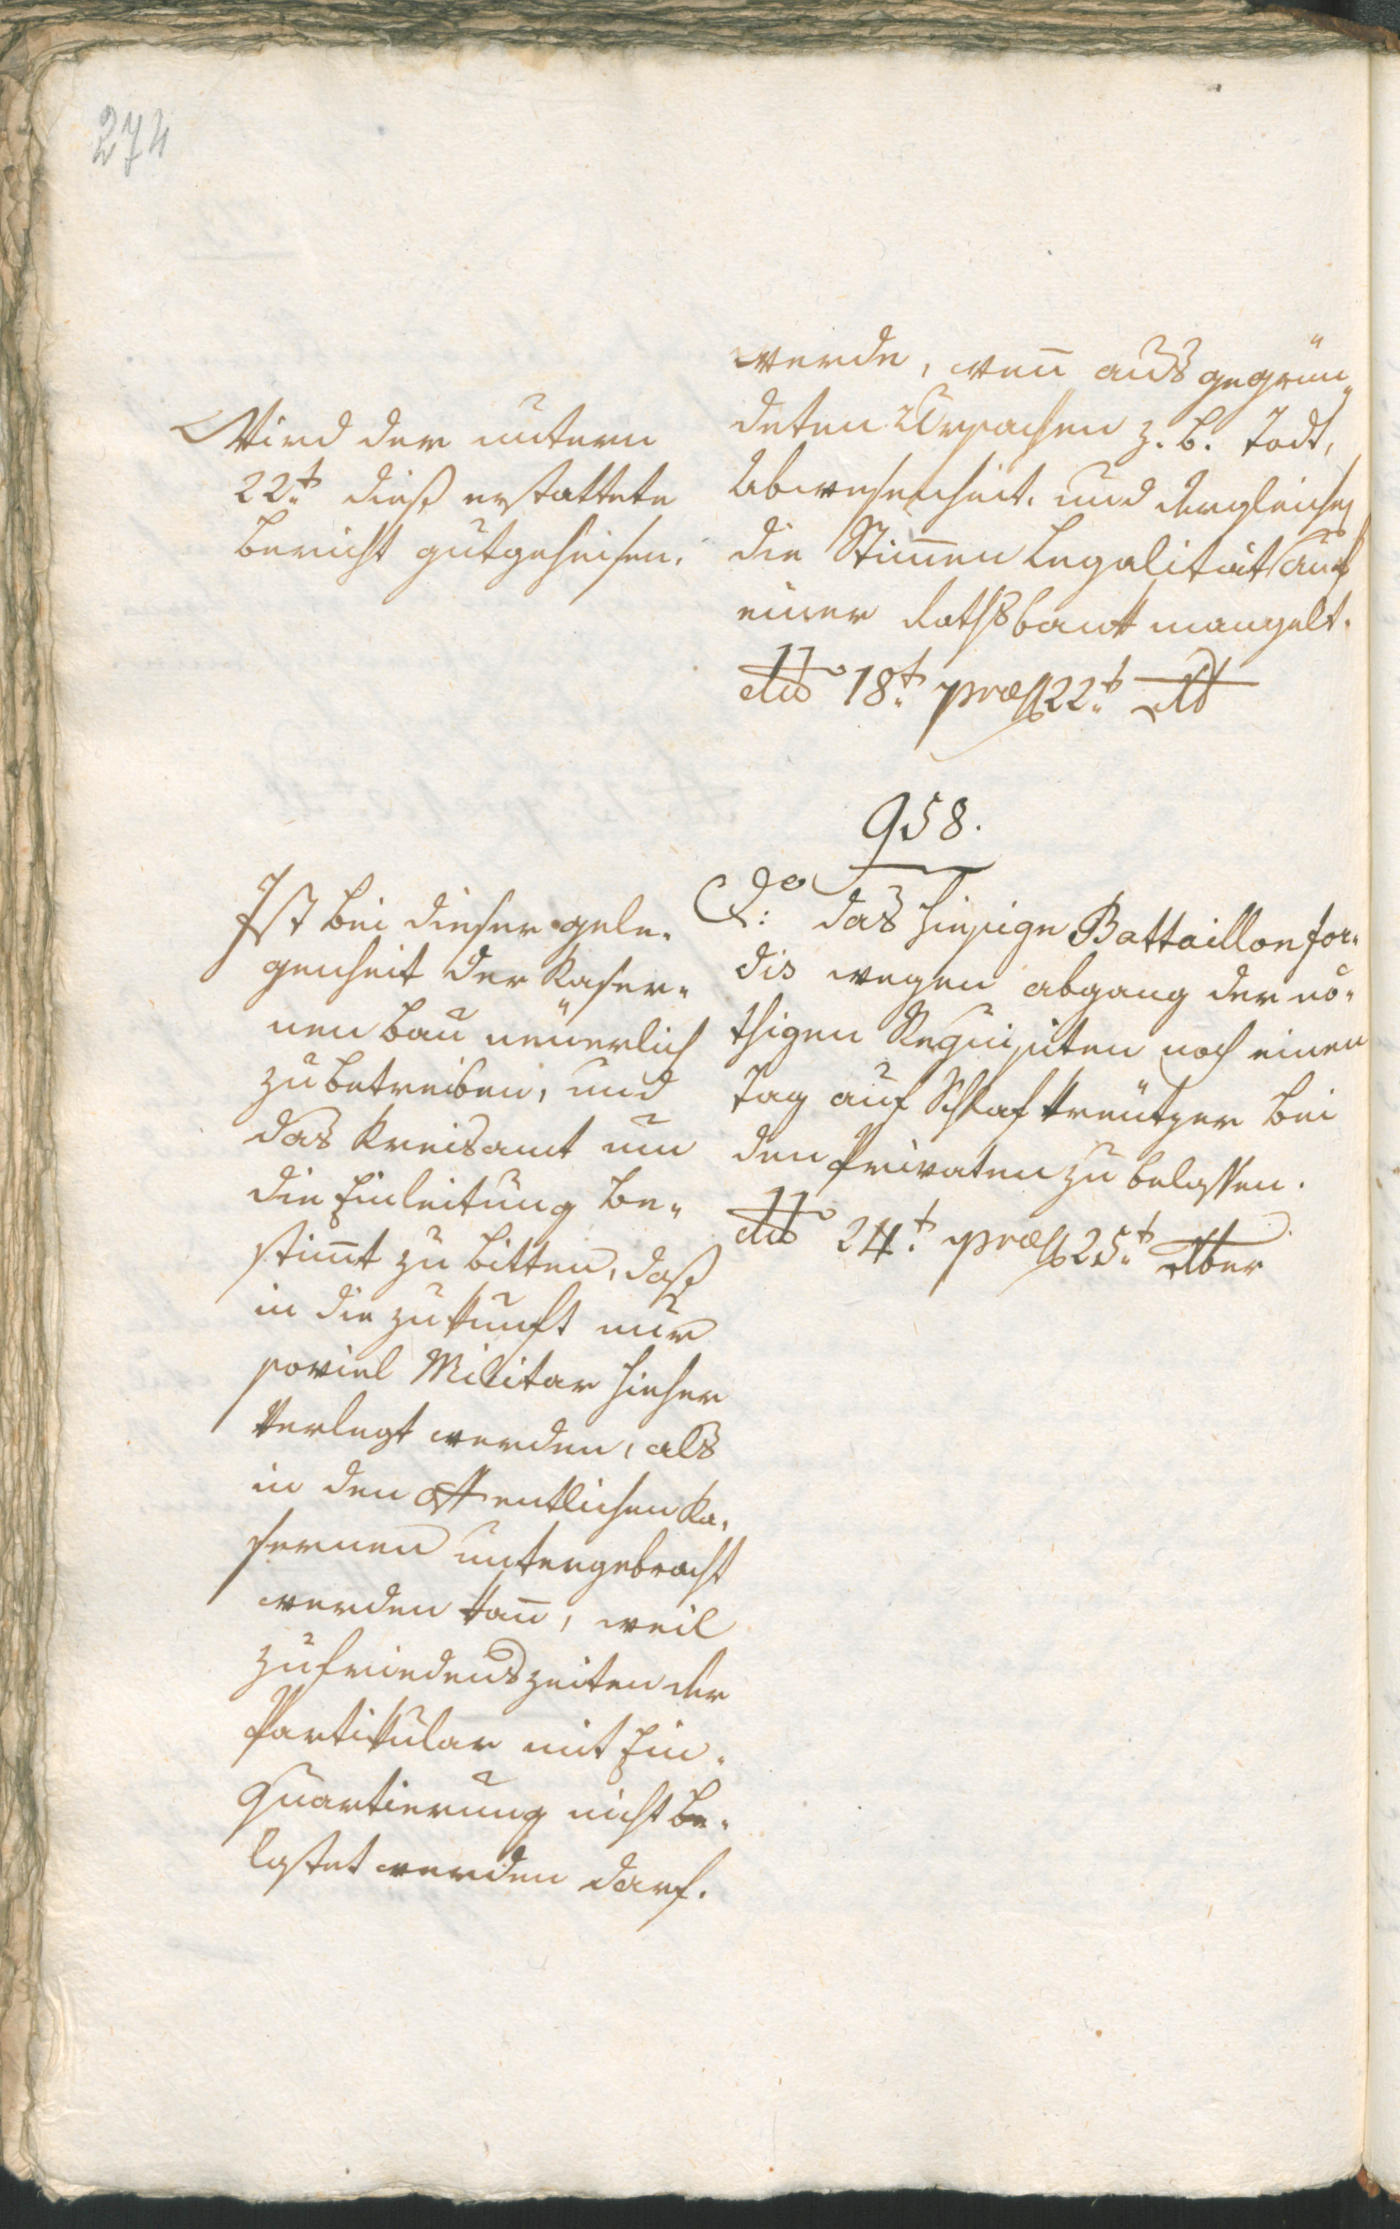 274
werde, wenn̄ aus gegrün„
deten Ursachen z. b. Todt,
Abwesenheit, und dergleichen
die Stim̄en Legalität auf
einer Rathsbank mangelt.
dto 18t. præs 22t.
Wird der unterm
22t. dieß erstattete
Bericht gutgeheisen.
958.
das hiesige Battaillon Jor„
dis wegen abgang der nö„
thigen Requisiten noch einen
Tag auf Schlafkreützer bei
den Privaten zu belassen.
dto 24t. præs 25t.
Ist bei dieser gele„
genheit der Kaser„
nen bau neüerlich
zu betreiben, und
das Kreisamt um
die Einleitung be„
stim̄t zu bitten, daß
in die zukunft nur
soviel Militar hieher
verlegt werden, als
in den öffentlichen Ka„
sernen untergebracht
werden kan̄, weil
zu friedenszeiten der
Partikular mit Ein„
quartierung nicht be„
lastet werden darf.